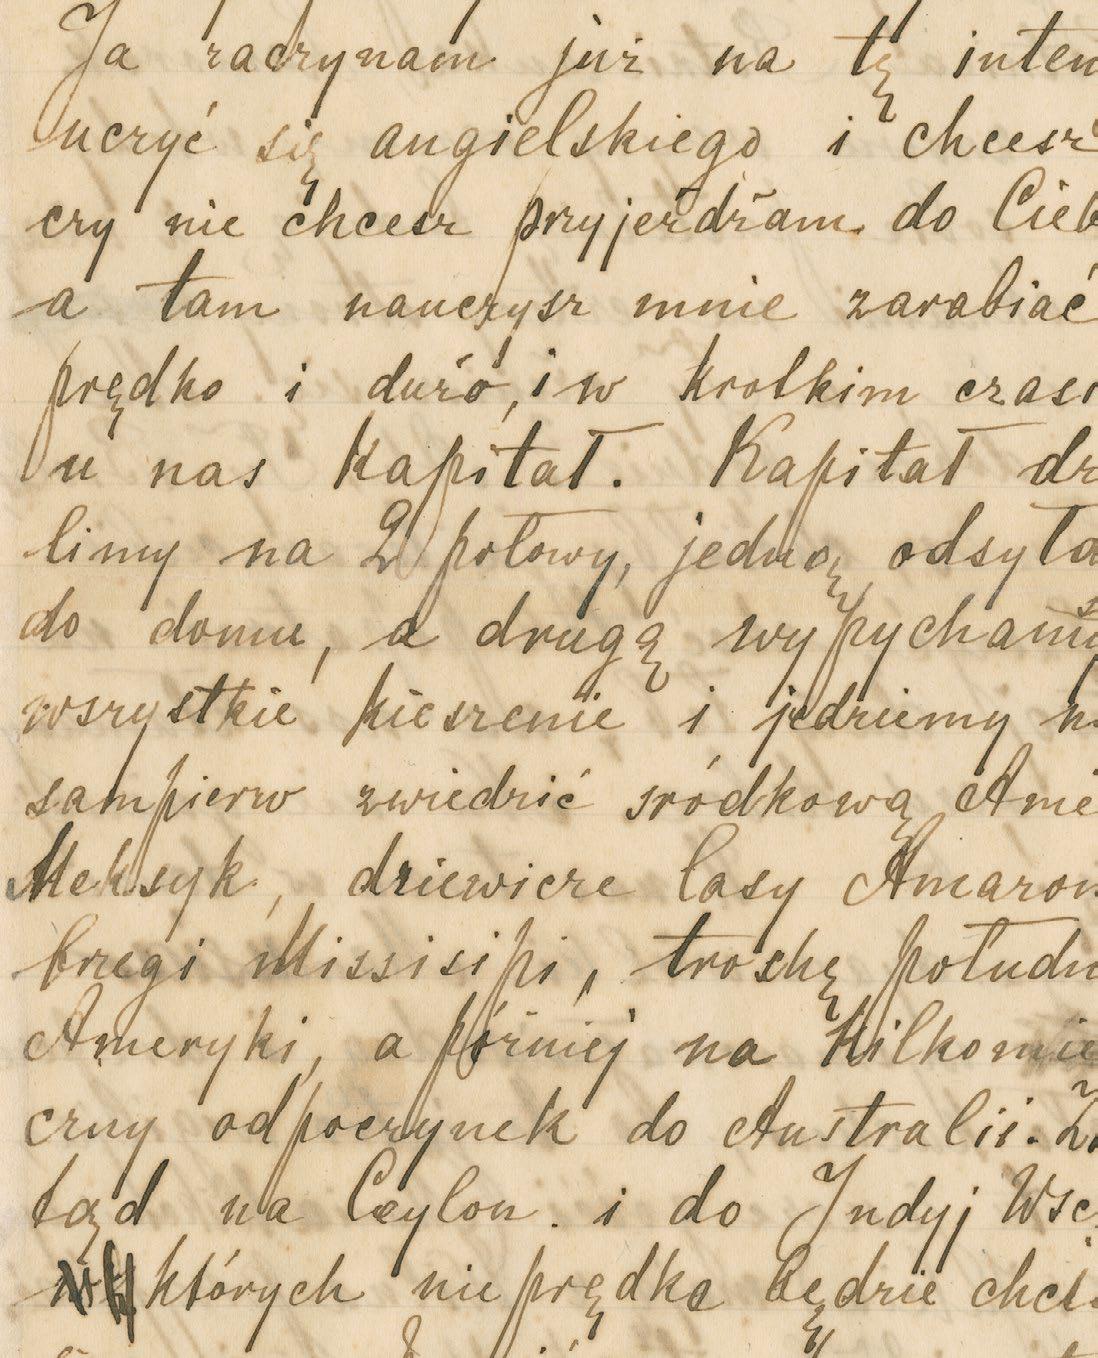 Ja zaczynam już na tę inten
uczyć się angielskiego i chcesz
czy nie chcesz przyjeżdżam do Cieb
a tam nauczysz mnie zarabiać
prędko i dużo, i w krotkim czasi
u nas kapitał. Kapitał dz
limy na 2 połowy, jedną odsyła
do domu, a drugą wypychamy
wszystkie kieszenie i jedziemy n
sampierw zwiedzić śródkową Ame
Meksyk, dziewicze lasy Amazon
brzegi Missisipi, trochę połudn
Ameryki, a później na kilkomie
czny odpoczynek do Australii. Z
tąd na Ceylon. i do Indyj Wsc
których nie prędko będzie chci